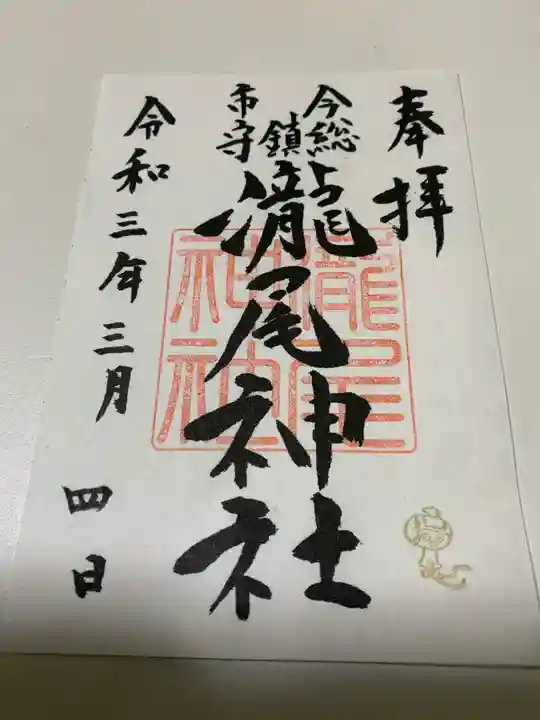 奉拝
今市総鎮守
瀧尾神社
令和三年三月四日
瀧尾神社